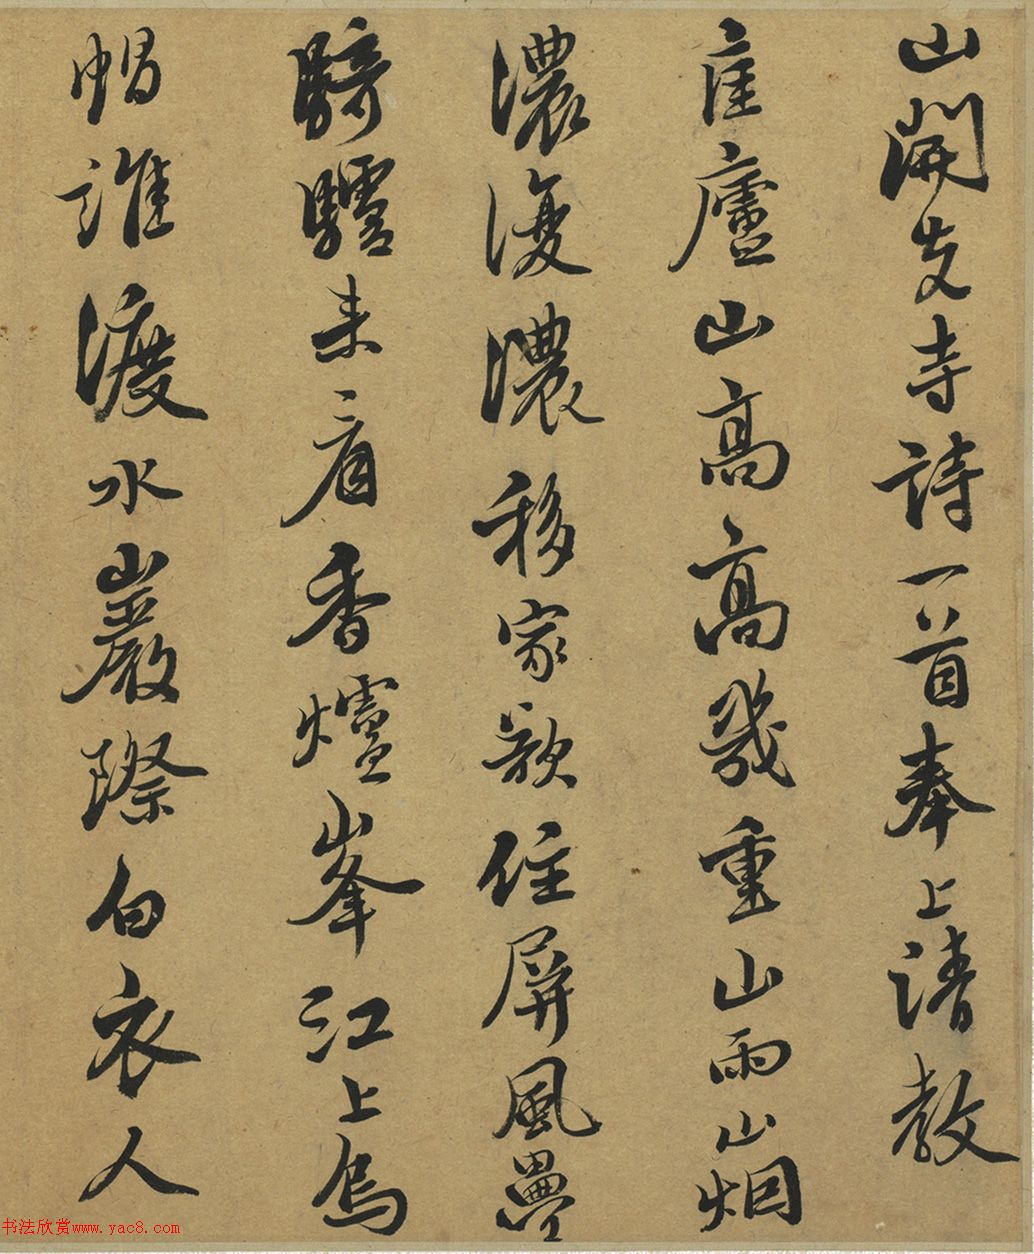 山開先寺詩一首奉上請教
匡廬山高高幾重山雨山烟
濃復濃移家欲住屏風疊
騎驢来看香爐峯江上烏
帽誰渡水巖際白衣人
书法欣赏www.yac8.com